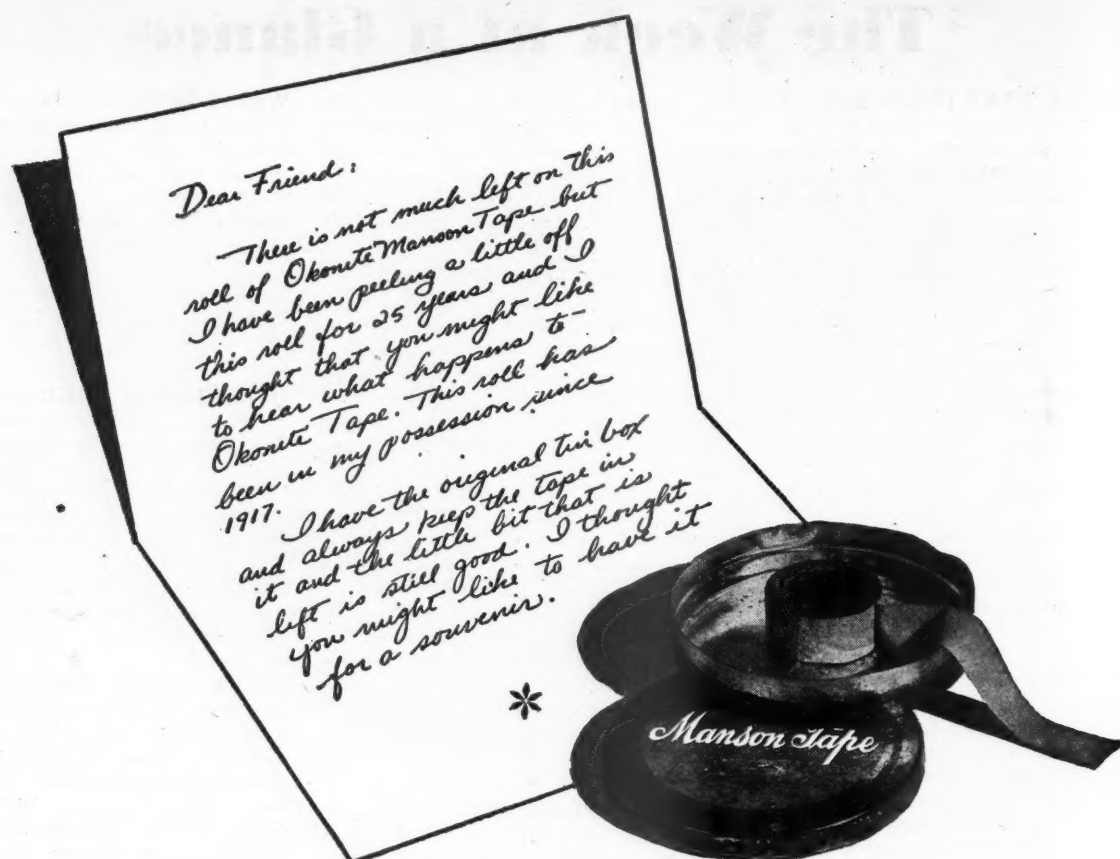 Dear Friend:
There is not much left on this
roll of Okonite Manson Tape but
I have been peeling a little off
this roll for 25 years and I
thought that you might like
to hear what happens to
Okonite Tape. This roll has
been in my possession since
1917.
I have the original tin box
and always keep the tape in
it and the little bit that is
left is still good. I thought
you might like to have it
for a souvenir.
*
Manson Tape